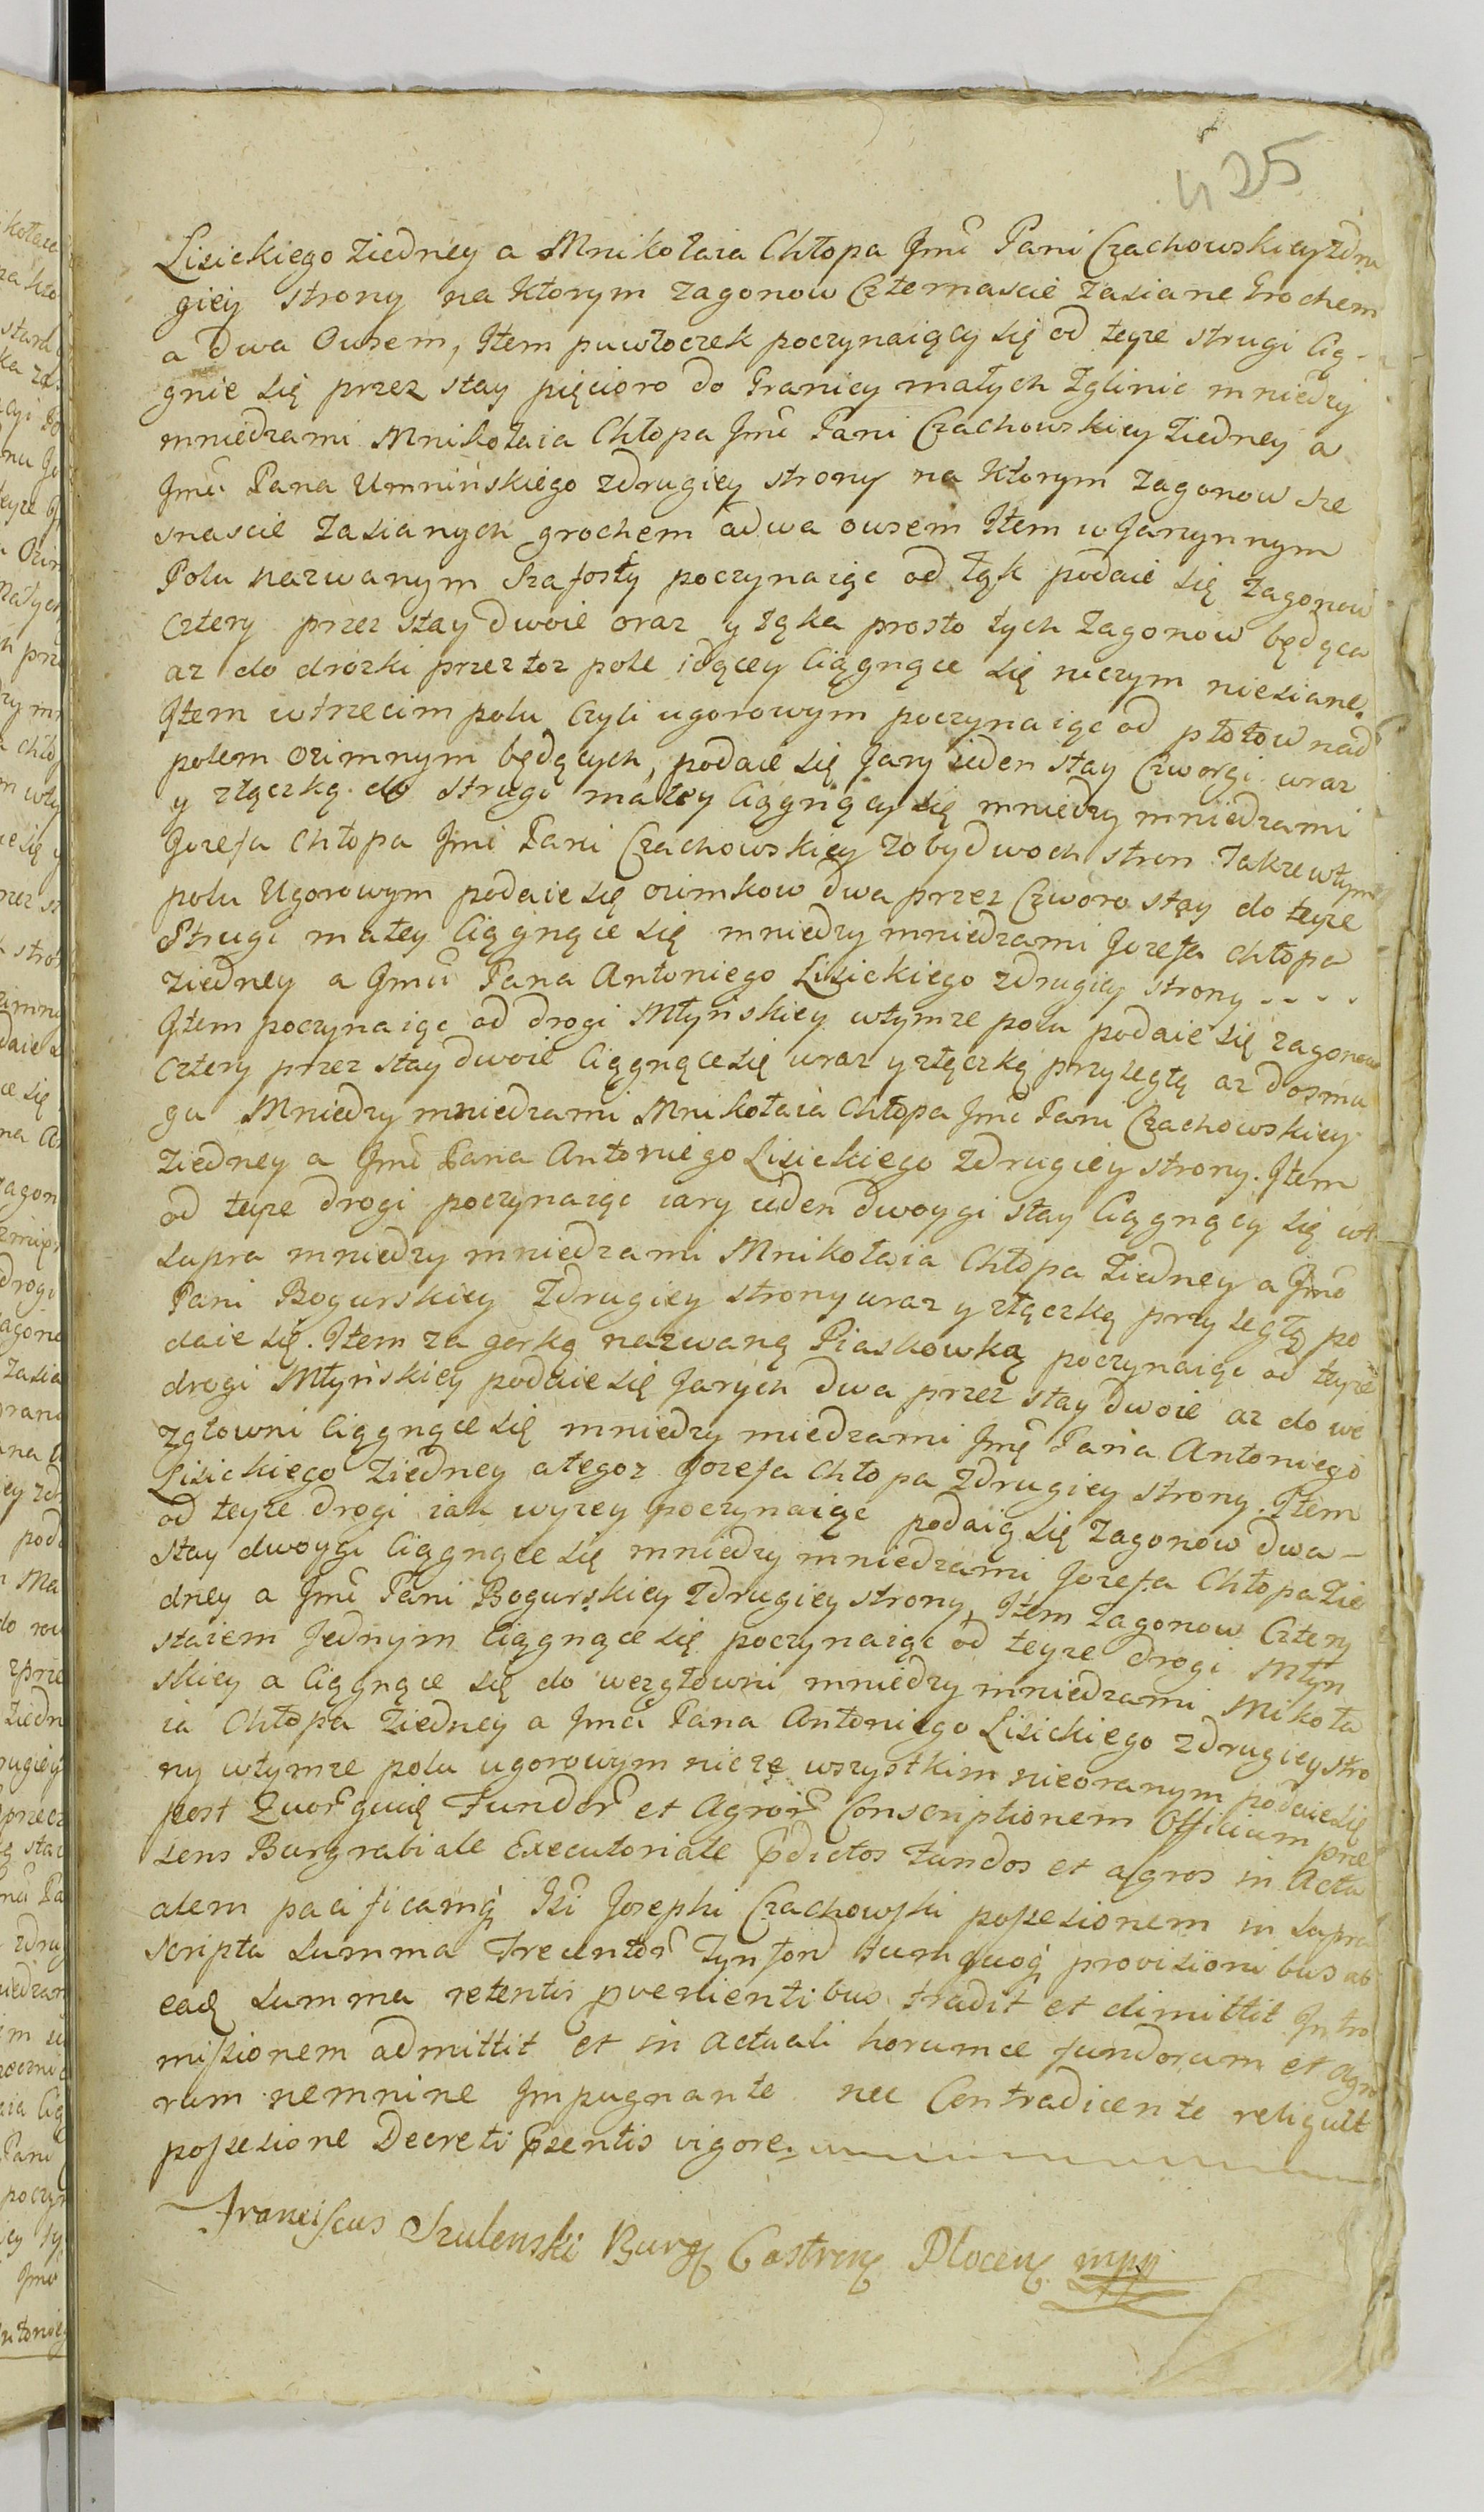 425
Lisickiego ziedney a Mnikołaia Chłopa Jmci Pani Czachowskiey zdru
giey strony na ktorym zagonow Czternascie zasiane Grochem
a dwa Owsem, Item puwłoczek poczynaiący się od teyze strugi Cią-
gnie się przez stay pięcioro do Granicy małych Zglinic mniedzy
mniedzami Mnikołaia Chłopa Jmci Pani Czachowskiey ziedney a
Jmci Pana Umninskiego zdrugiey strony na ktorym zagonow sze
snascie zasianych grochem a dwa owsem Item w Jarzynnym
Polu nazwanym Szafosty poczynaiąc od łąk podaie się zagonow
cztery przez stay dwoie oraz y łąka prosto tych zagonow będąca
az do drózki przez toz pole idącey Ciągnące się niczym niesiane.
Item wtrzecim polu Czyli ugorowym poczynaiąc od płotow nad
polem ozimnym będących, podaie się Jary ieden stay Czworgi wraz
y złączką do strugi małey Ciągnący się mniedzy mniedzami
Jozefa Chłopa Jmci Pani Czachowskiey zobydwoch stron Takze wtym
polu Ugorowym podaie się ozimkow dwa przez Czworo stay do teyze
Strugi małey Ciągnące się mniedzy mniedzami Jozefa chłopa
ziedney a Jmci Pana Antoniego Lisickiego zdrugiey strony - - - -
Item poczynaiąc od drogi Młynskiey wtymze polu podaie się zagonow
cztery przez stay dwoie Ciągnące się wraz y złączką przyległą az do smu
gu Mniedzy mniedzami Mnikołaia Chłopa Jmci Pani Czachowskiey
ziedney a Jmci Pana Antoniego Lisickiego zdrugiey strony. Item
od teyze drogi poczynaiąc iary ieden dwoygi stay Ciągnący się ut
supra mniedzy mniedzami Mnikołaia Chłopa ziedney a Jmci
Pani Bogurskiey zdrugiey strony wraz y złączką przyległą po
daie się. Item za gorką nazwaną Piaskowką poczynaiąc od teyze
drogi Młynskiey podaie się Jarych dwa przez stay dwoie az do we
zgłowni Ciągnące się mniedzy miedzami Jmci Pana Antoniego
Lisickiego ziedney a tegoz Jozefa Chłopa zdrugiey strony. Item
od teyze drogi iak wyzey poczynaiąc podaią się zagonow dwa -
stay dwoygi Ciągnące się mniedzy mniedzami Jozefa Chłopa zie
dney a Jmci Pani Bogurskiey zdrugiey strony, Item zagonow Cztery
staiem Jednym Ciągnące się poczynaiąc od teyze drogi Młyn
skiey a Ciągnące się do wezgłowni mniedzy mniedzami Mikoła
ia Chłopa ziedney a Jmci Pana Antoniego Lisickiego zdrugiey stro
ny wtymze polu ugorowym wszystkim nieoranym podaie się
post Quor Fundor et Agror Conscriptionem Officium prae
sens Burgrabiale Executoriale pdictos Fundos et agros in Actu
alem pacificamq Josephi Czachowski possesionem in supra
scripta summa Trecentor Tynfon cumquoq provisionibus ab
eadę summa retentis pvenientibus tradit et dimittit Intro
missionem admittit et in actuali horumce fundorum et agro
rum nemnine Impugnante nec Contradicente reliquit
possesione Decreti psentis vigore.
Franciscus Szulenski Burg Castren Plocen mpp